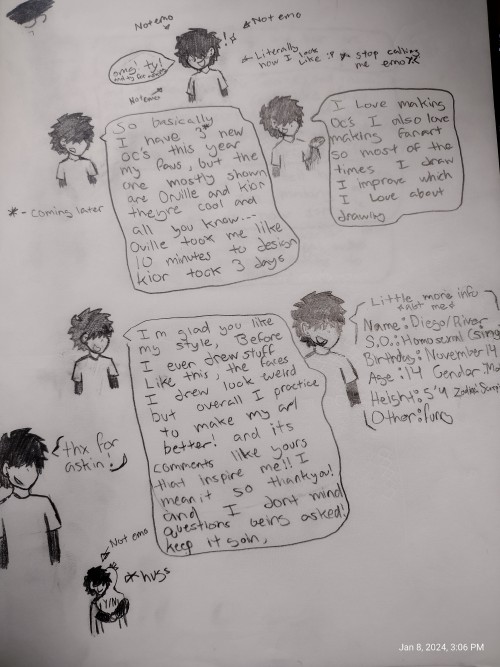 Not emo
Not emo
omg! ty!
Literally
how I look
like :p stop calling
me emo
Not emo
So basically
I have 3* new
OC's this year
my favs, but the
one mostly shown
are Orville and kior
theyre cool and
all you know...
Oville took me like
10 minutes to design
kior took 3 days
I Love making
OC's I also love
making fanart
so most of the
times I draw
I improve which
I Love about
drawing
* - coming later
I'm glad you like
my style, Before
I ever drew stuff
Like this, the faces
I drew look weird
but overall I practice
to make my art
better! and its
comments like yours
that inspire me!! I
mean it so thankyou!
and I dont mind
questions being asked!
keep it goin,
Little more info
*not me*
Name: Diego/River
S.O.: Homosexual (sing
Birthday: November 14
Age: 14 Gender: Ma
Height: 5'4 Zodiac: Scorpi
Other: furry
thx for
askin!
Not emo
*hugs
Y/N
Jan 8, 2024, 3:06 PM